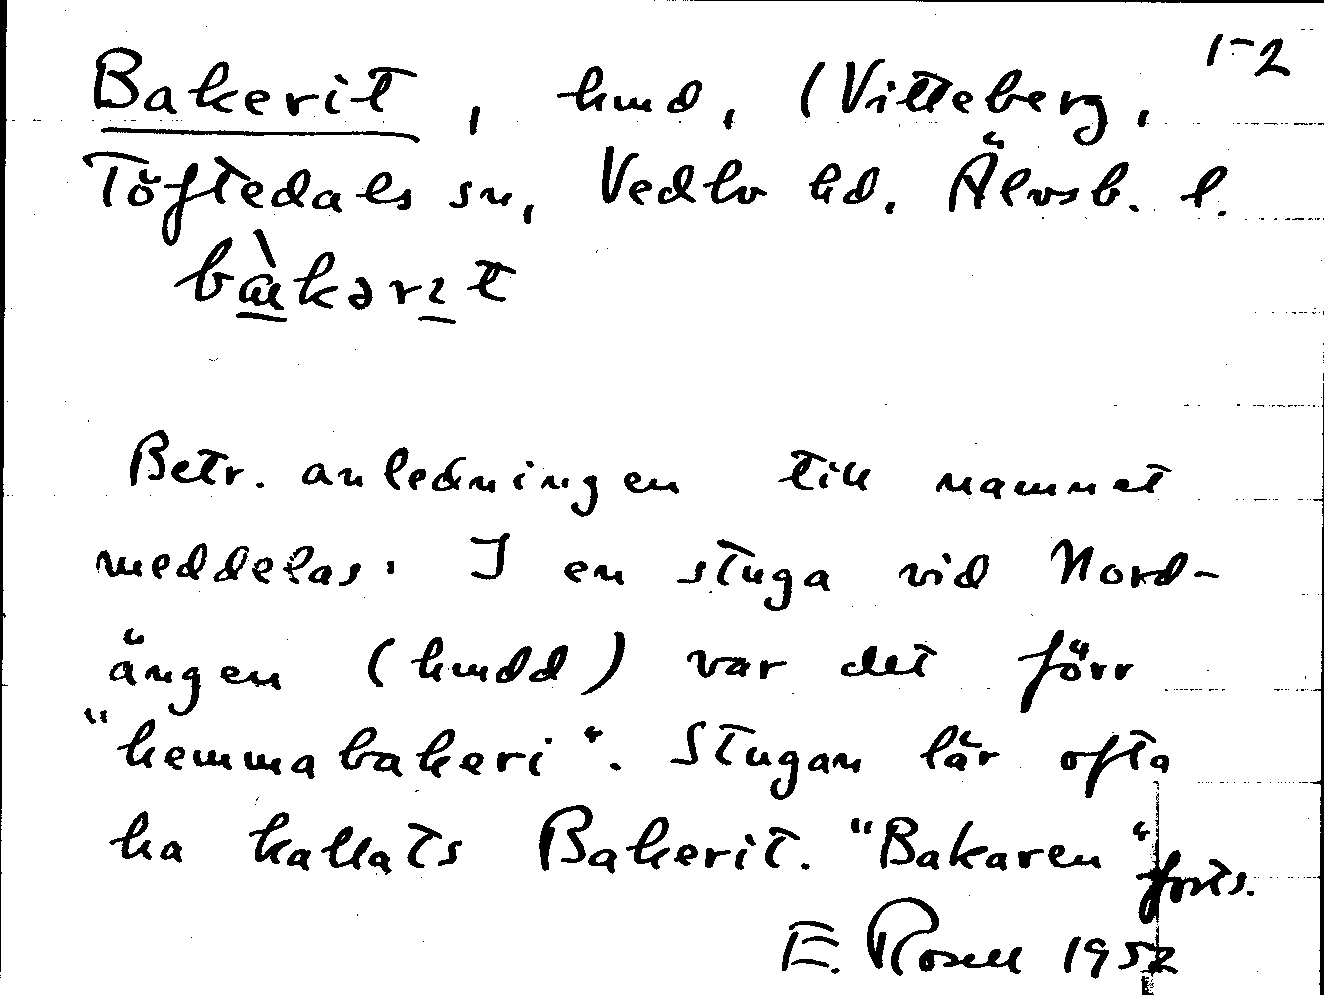 1-2
Bakerit, hmd, (Vitteberg,
Töftedals sn, Vedbo hd. Älvsb. l.
bàkərɩt
Betr. anledningen till namnet
meddelas: I en stuga vid Nord-
ängen (hmdd) var det förr
"hemmabakeri". Stugan lär ofta
ha kallats Bakerit. "Bakaren"
forts.
E. Rosell 1952